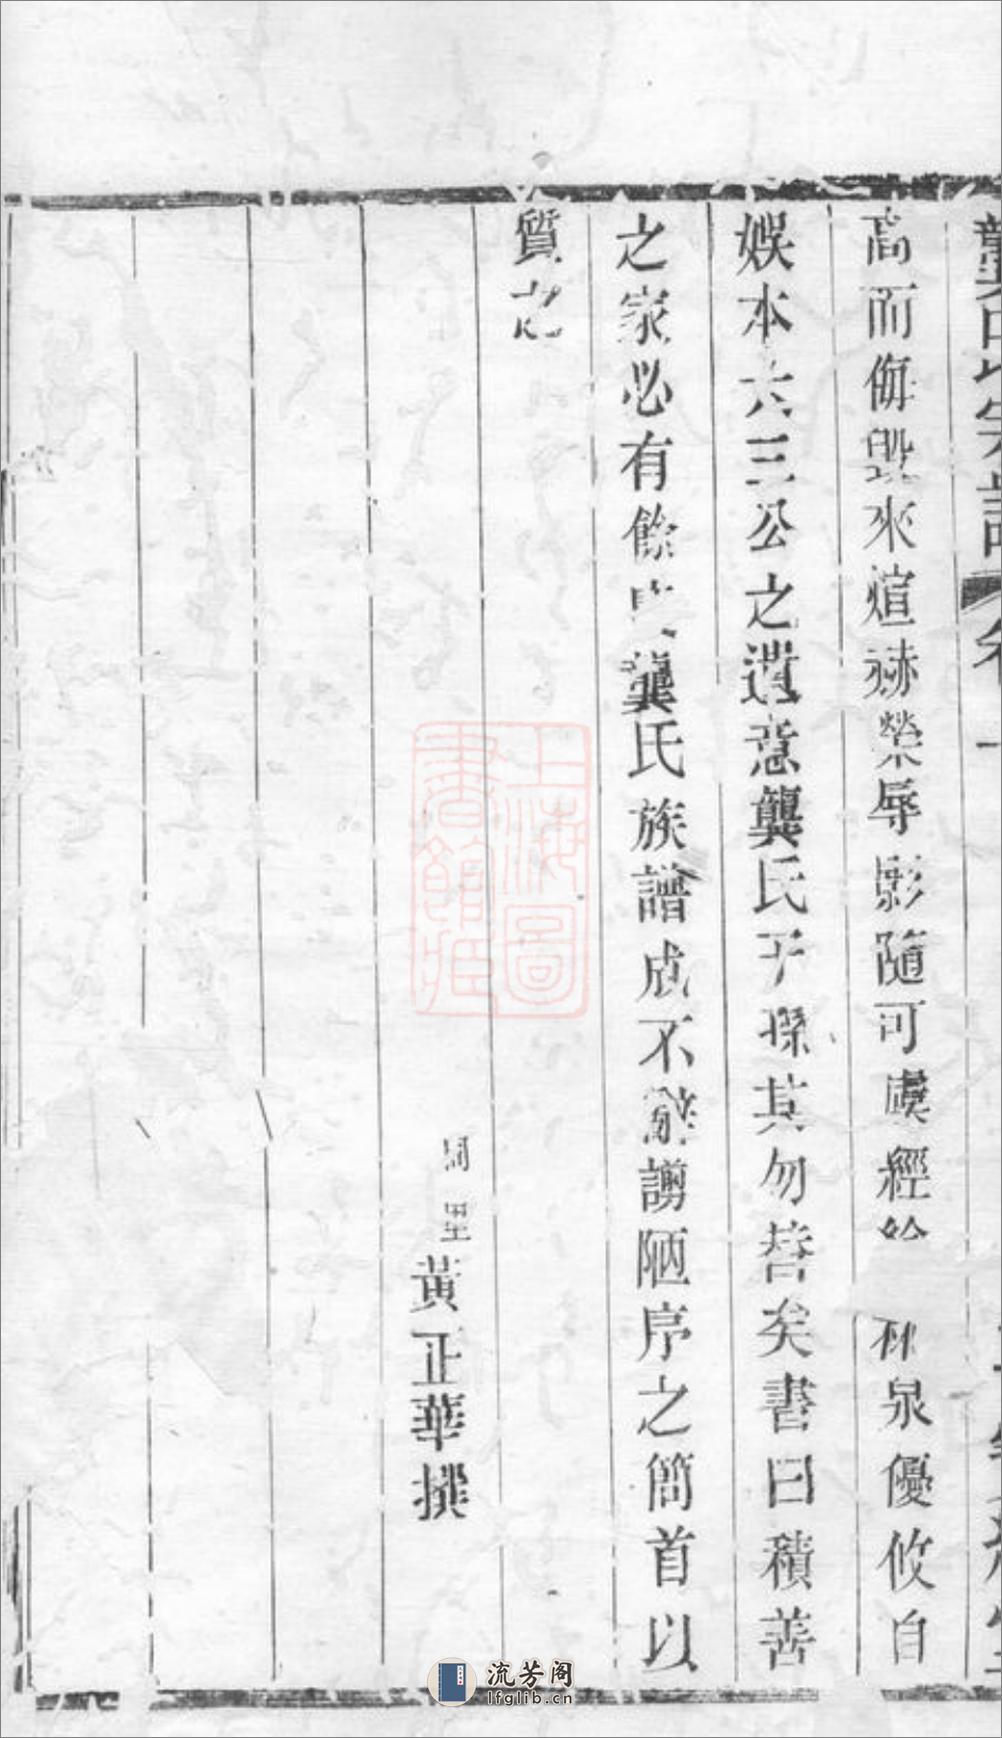 龔氏宗譜 卷一
高而侮毀來煊赫榮辱影隨可虞經綸 林泉優攸自
娛本六三公之遺意龔氏子孫其勿替矣書曰積善
之家必有餘慶龔氏族譜成不辭謭陋序之簡首以
質
里黃正華撰
上海圖書館藏
流芳阁
lfglib.cn